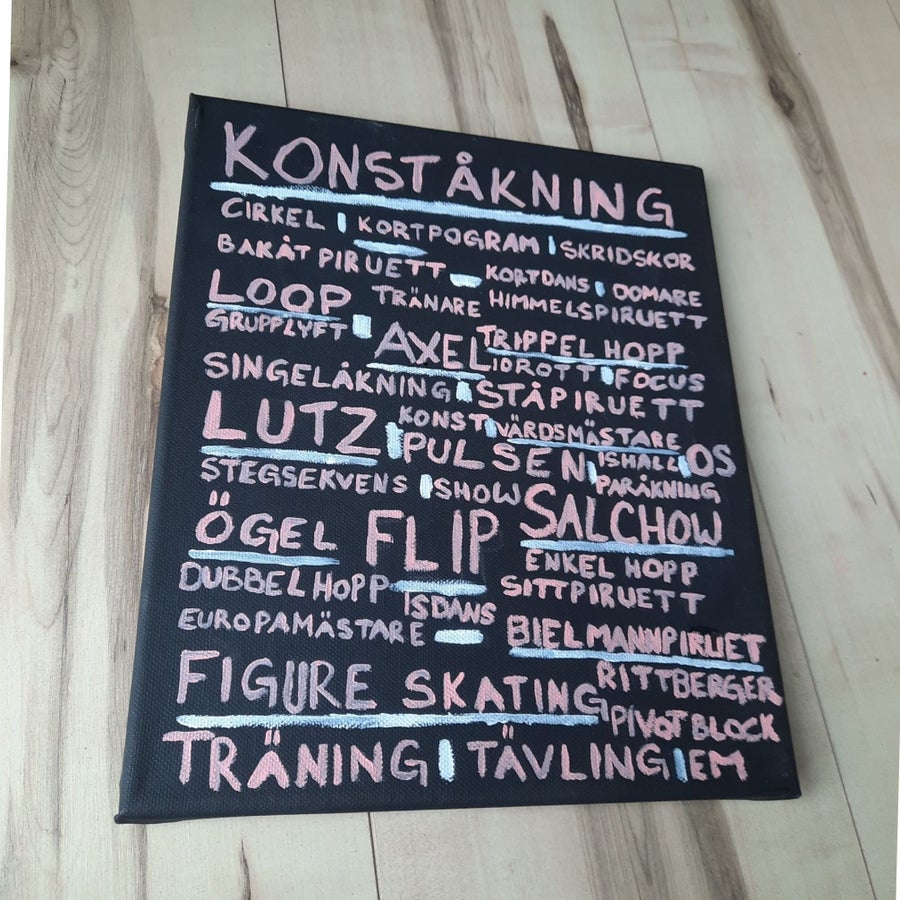 KONSTÅKNING
CIRKEL KORTPOGRAM SKRIDSKOR
BAKÅT PIRUETT KORTDANS DOMARE
LOOP TRÄNARE HIMMELSPIRUETT
GRUPPLYFT AXEL TRIPPEL HOPP
IDROTT FOCUS
SINGELÅKNING STÅPIRUETT
LUTZ KONST VÄRDSMÄSTARE
PULSEN ISHALL OS
STEGSEKVENS SHOW PARÅKNING
ÖGEL FLIP SALCHOW
ENKEL HOPP
DUBBELHOPP ISDANS SITTPIRUETT
EUROPAMÄSTARE BIELMANNPIRUET
FIGURE SKATING RITTBERGER
PIVOT BLOCK
TRÄNING TÄVLING EM